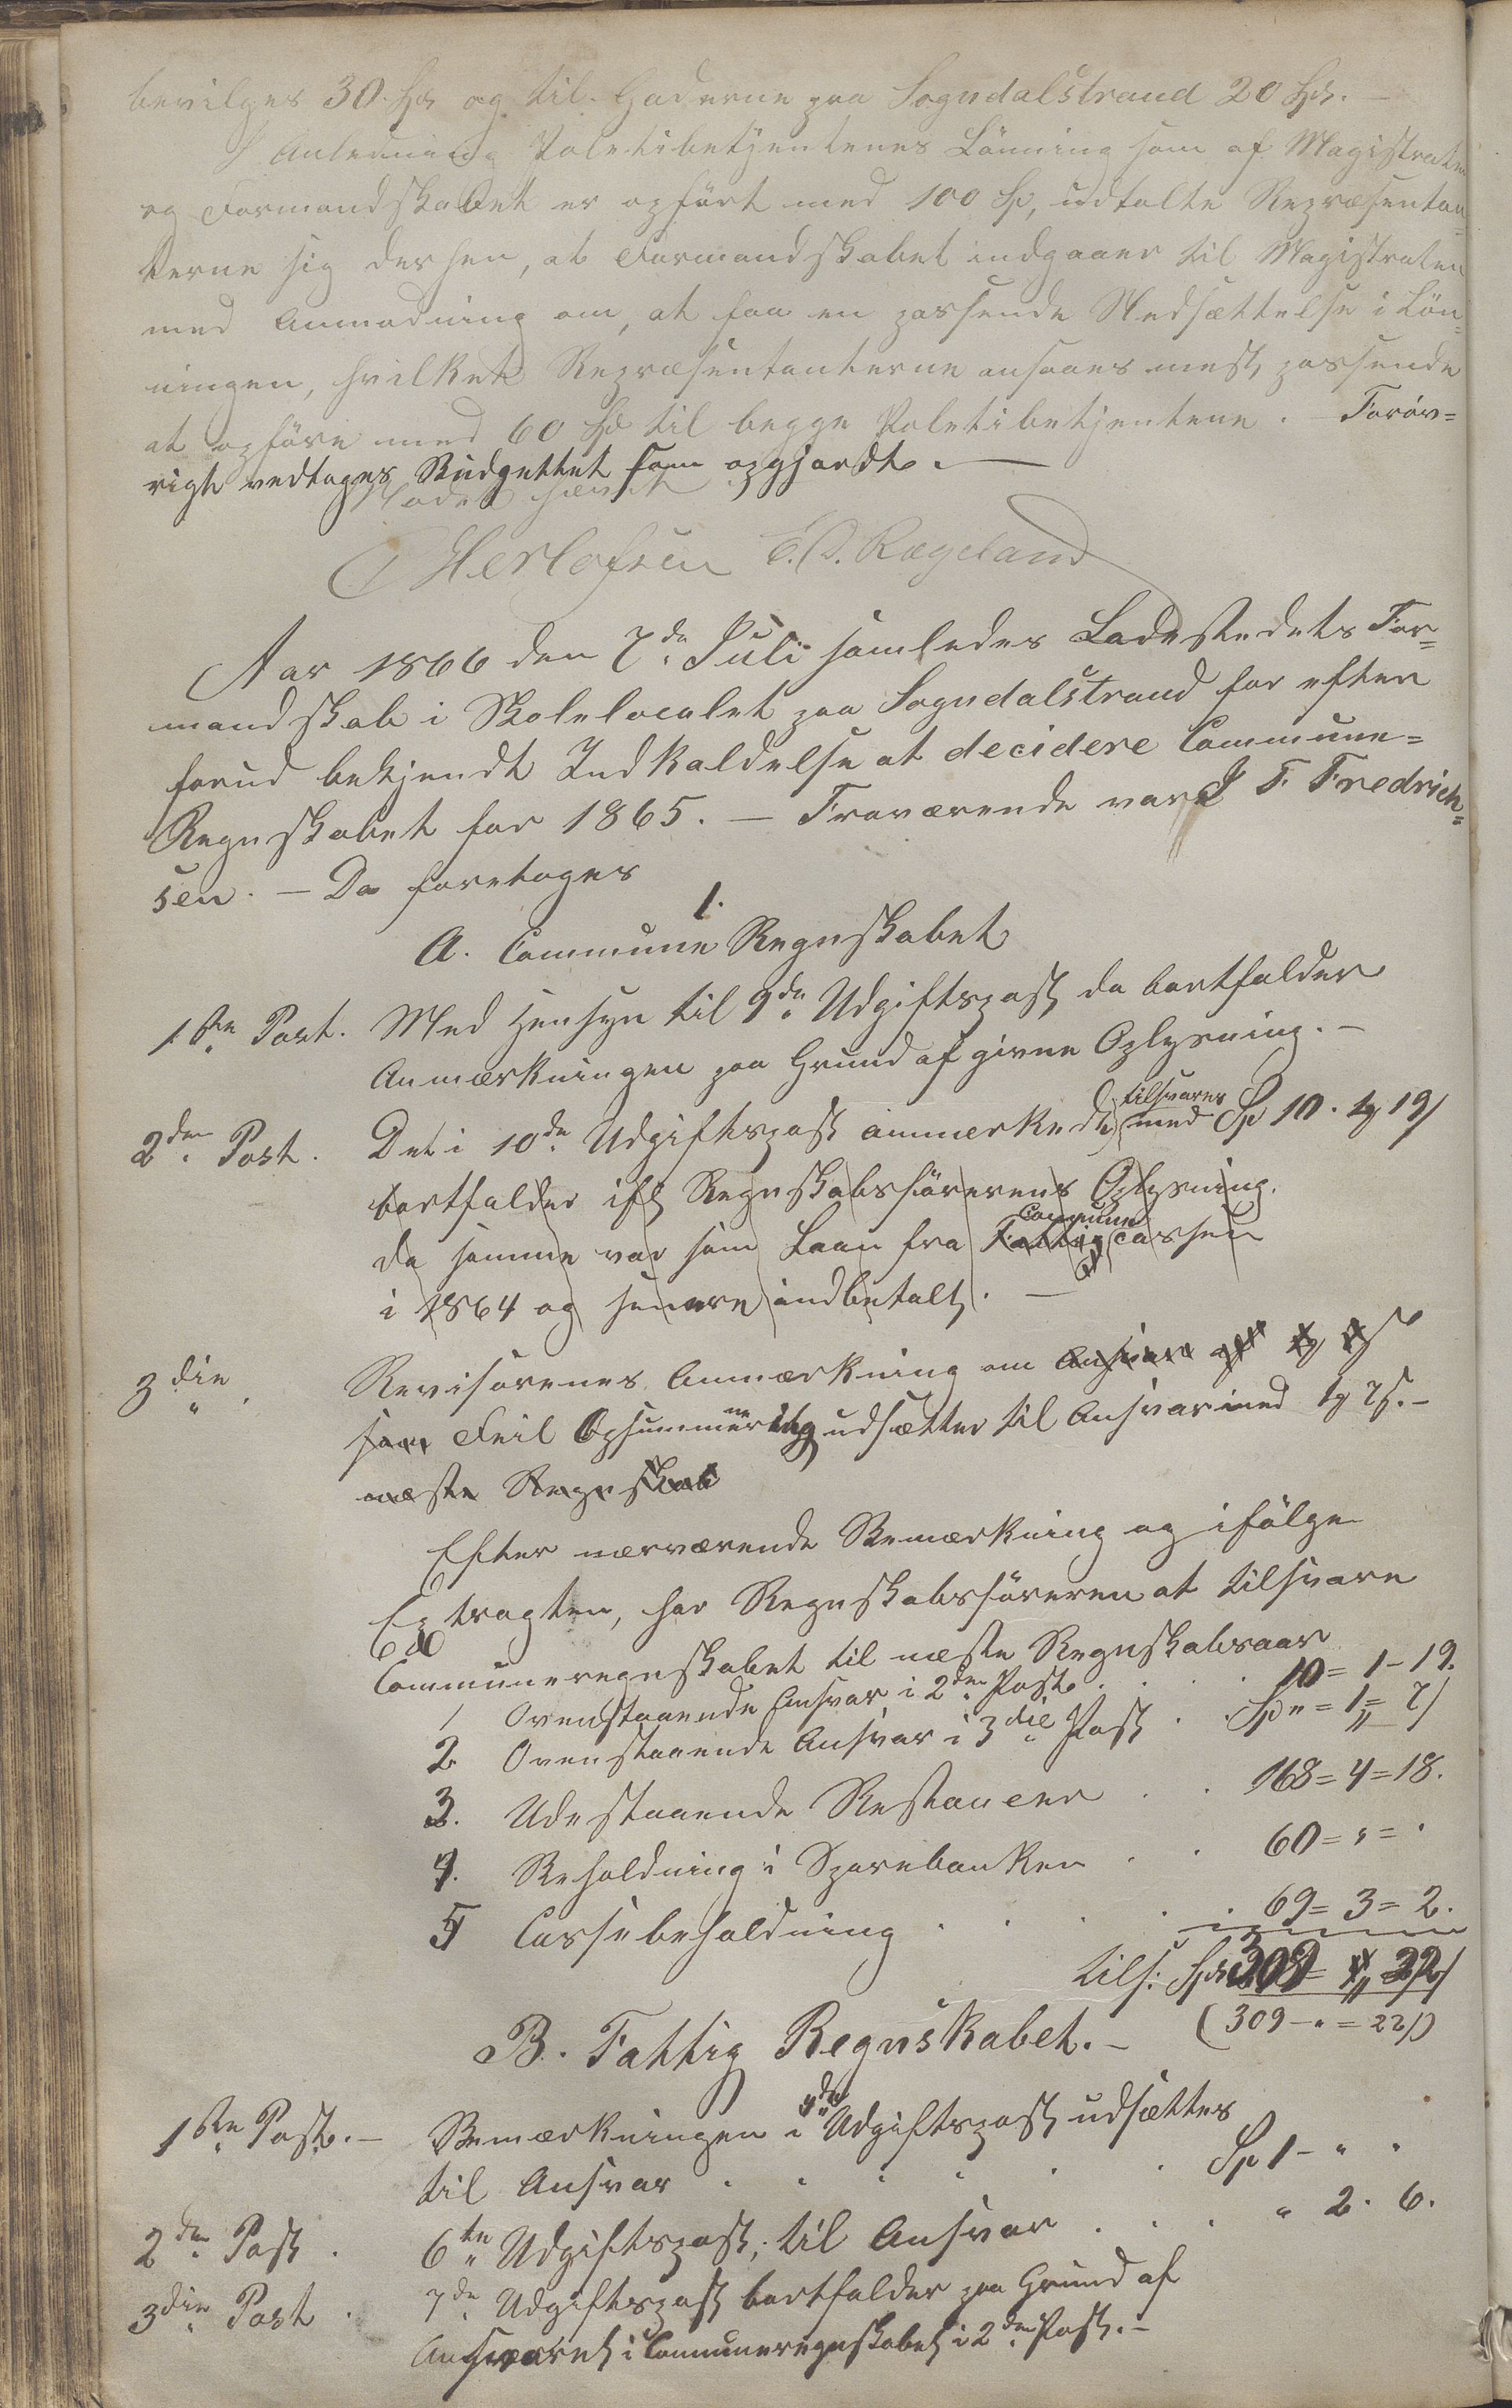 bevilges 30 Spd og til Gaderne paa Sogndalstrand 20 Spd. —
I Anledning Poletibetjentenes Lönning som af Magistraten
og Formandskabet er opfört med 100 Sp, udtalte Repræsentan-
terne sig derhen, at Formandskabet indgaaer til Magistraten
med Anmodning om, at faa en passende Nedsættelse i Lön-
ningen, hvilket Repræsentanterne ansaaes mest passende
at opföre med 60 Spd til begge Poletibetjentene. Foröv-
rigt vedtages Budgettet som opgjordt. —
Mödet hævet
Herlofsen E. O. Rægeland
Aar 1866 den 7de Juli samledes Ladestedets For-
mandskab i Skolelocalet paa Sogndalstrand for efter
forud bekjendt Indkaldelse at decidere Commune-
Regnskabet for 1865. — Fraværende var J F. Fredrich-
sen. — Da foretoges
1.
A. Commune Regnskabet
1ste Post. Med Hensyn til 9de Udgiftspost da bortfalder
Anmærkningen paa Grund af givne Oplysning. —
2den Post. Det i 10de Udgiftspost anmerkede tilsvares med Sp 10. 1 19 /
bortfalder ifl Regnskabsförerens Oplysning.
da samme var som Laan fra Fattig Commune Cassen
i 1864 og senere indbetalt. —
3die " . Revisorenes Anmærkning om Ansvar
som Feil Opsummering udsættes til Ansvar med 1 7 s. —
næste Regnskab
Efter nærværende Bemærkning og ifölge
Extragten, har Regnskabsföreren at tilsvare
Communeregnskabet til næste Regnskabsaar
1 Ovenstaaende Ansvar i 2den Post . . . 10 = 1 - 19.
2 Ovenstaaende Ansvar i 3die Post . . Sp " = 1 = 7 /
3. Udestaaende Restancer . . 168 = 4 = 18.
4. Beholdning i Sparebanken . . 60 = " = "
5 Cassebeholdning . . . . . 69 = 3 = 2.
tils: Spd 309 = " 22 /
(309 - " = 22 /)
B. Fattig Regnskabet. —
1ste Post. — Bemærkningen i Udgiftspost udsættes
til Ansvar . . . . . . Sp 1 - " "
2den Post . 6te Udgiftspost; til Ansvar . . . " 2. 6.
3die Post . 7de Udgiftspost bortfalder paa Grund af
Ansvaret i Communeregnskabet i 2den Post. —